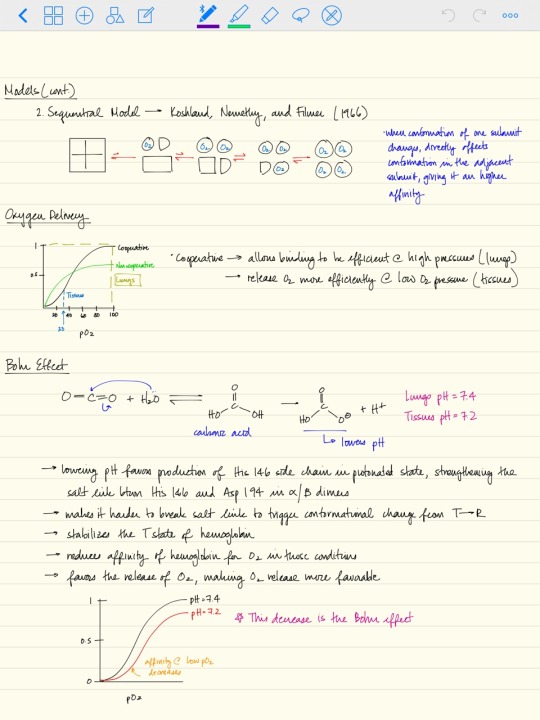 Models (cont)
2. Sequential Model → Koshland, Nemethy, and Filmer (1966)
O₂
O₂ O₂
O₂ O₂
O₂ O₂
O₂ O₂
· when conformation of one subunit
changes, directly affects
conformation in the adjacent
subunit, giving it an higher
affinity
Oxygen Delivery
1
Cooperative
Noncooperative
Lungs
0.5
Tissues
20 40 60 80 100
30
pO2
· Cooperative → allows binding to be efficient @ high pressures (lungs)
→ release O₂ more efficiently @ low O₂ pressure (tissues)
Bohr Effect
O=C=O + H₂O
O
HO OH
O
C
HO O⊖ + H⁺
carbonic acid
↳ lowers pH
Lungs pH = 7.4
Tissues pH = 7.2
→ lowering pH favors production of His 146 side chain in protonated state, strengthening the
salt link btwn His 146 and Asp 194 in α/β dimers
→ makes it harder to break salt link to trigger conformational change from T→R
→ stabilizes the T state of hemoglobin
→ reduces affinity of hemoglobin for O₂ in those conditions
→ favors the release of O₂, making O₂ release more favorable
1
pH=7.4
pH=7.2
☆ This decrease is the Bohr effect
0.5
affinity @ low pO2
decreases
0
pO2